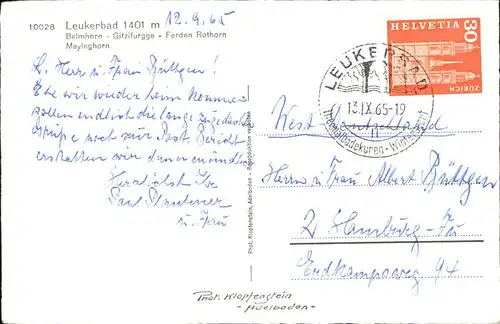 10028 Leukerbad 1401 m 12.9.65
Balmhorn - Gitzifurgge - Ferden Rothorn
Mayinghorn
L. Herr u. Frau Büttgen!
Ehe wir wieder heim kommen
sollen endlich die lange zugedachten
Grüsse noch zur Post. Bericht
erstatten wir dann mündlich
Herzlichst Ihr
Paul
u. Frau
Phot. Klopfenstein, Adelboden - Reproduktion verboten
HELVETIA 30
ZÜRICH
LEUKERBAD
13.IX.65-19
West Deutschland
Herrn u. Frau Albert Büttgen
2 Hamburg-Fu
Erdkampsweg 94
Phot. Klopfenstein
- Adelboden -